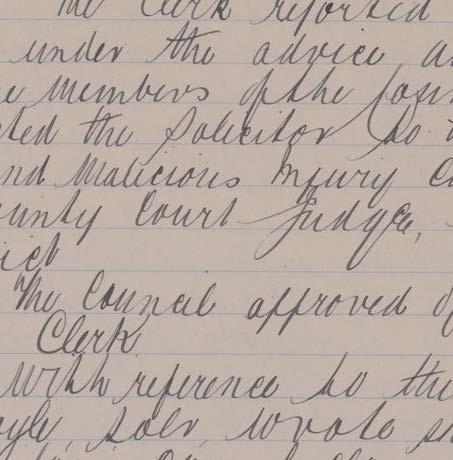 The Clerk reported
under the advice a
e Members of the Coun
cted the Solicitor to
nd Malicious Injury C
ounty Court Judge,
ict
The Council approved o
Clerk
With reference to the
oyle, Solr, wrote